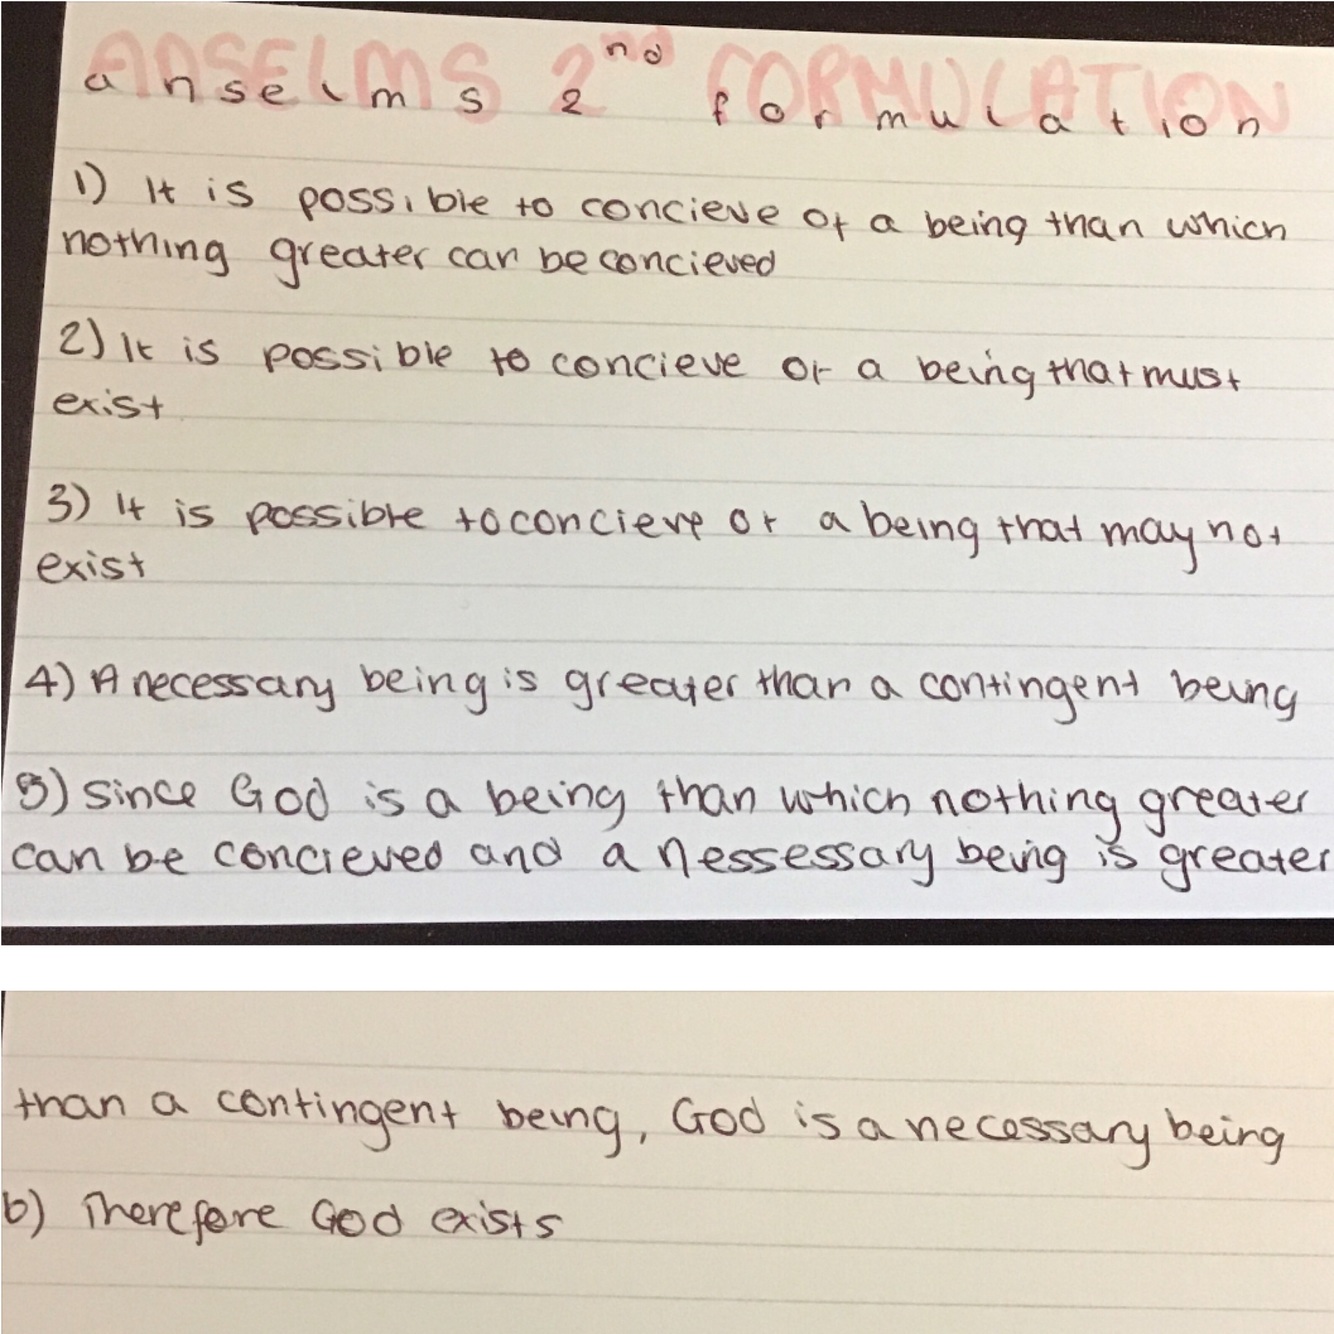 ANSELMS 2nd FORMULATION
anselms 2nd formulation
1) It is possible to concieve of a being than which
nothing greater can be concieved
2) It is possible to concieve of a being that must
exist
3) It is possible to concieve of a being that may not
exist
4) A necessary being is greater than a contingent being
5) since God is a being than which nothing greater
can be concieved and a nessessary being is greater
than a contingent being, God is a necessary being
6) Therefore God exists